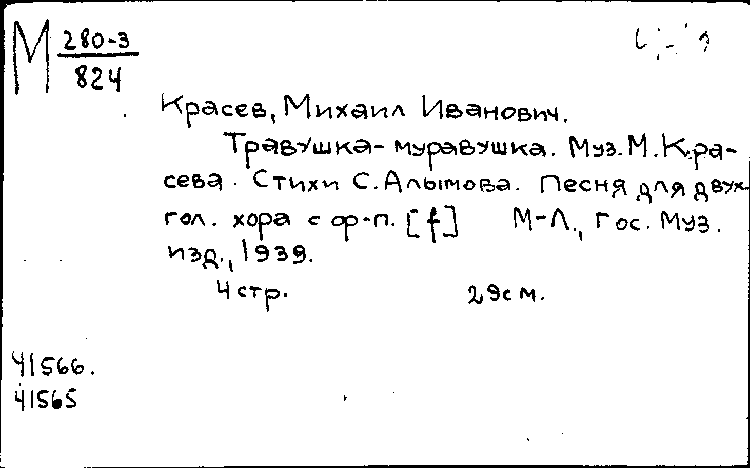 М 280-3
824
Красев, Михаил Иванович.
Травушка-муравушка. Муз. М. Кра-
сева. Стихи С. Алымова. Песня для двух-
гол. хора с ф-п. [f] М-Л., Гос. Муз.
изд., 1939.
4 стр. 29 см.
41566.
41565